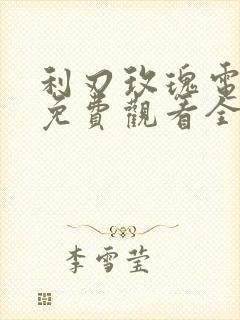 利刃玫瑰電
免費觀看全
李雪莹